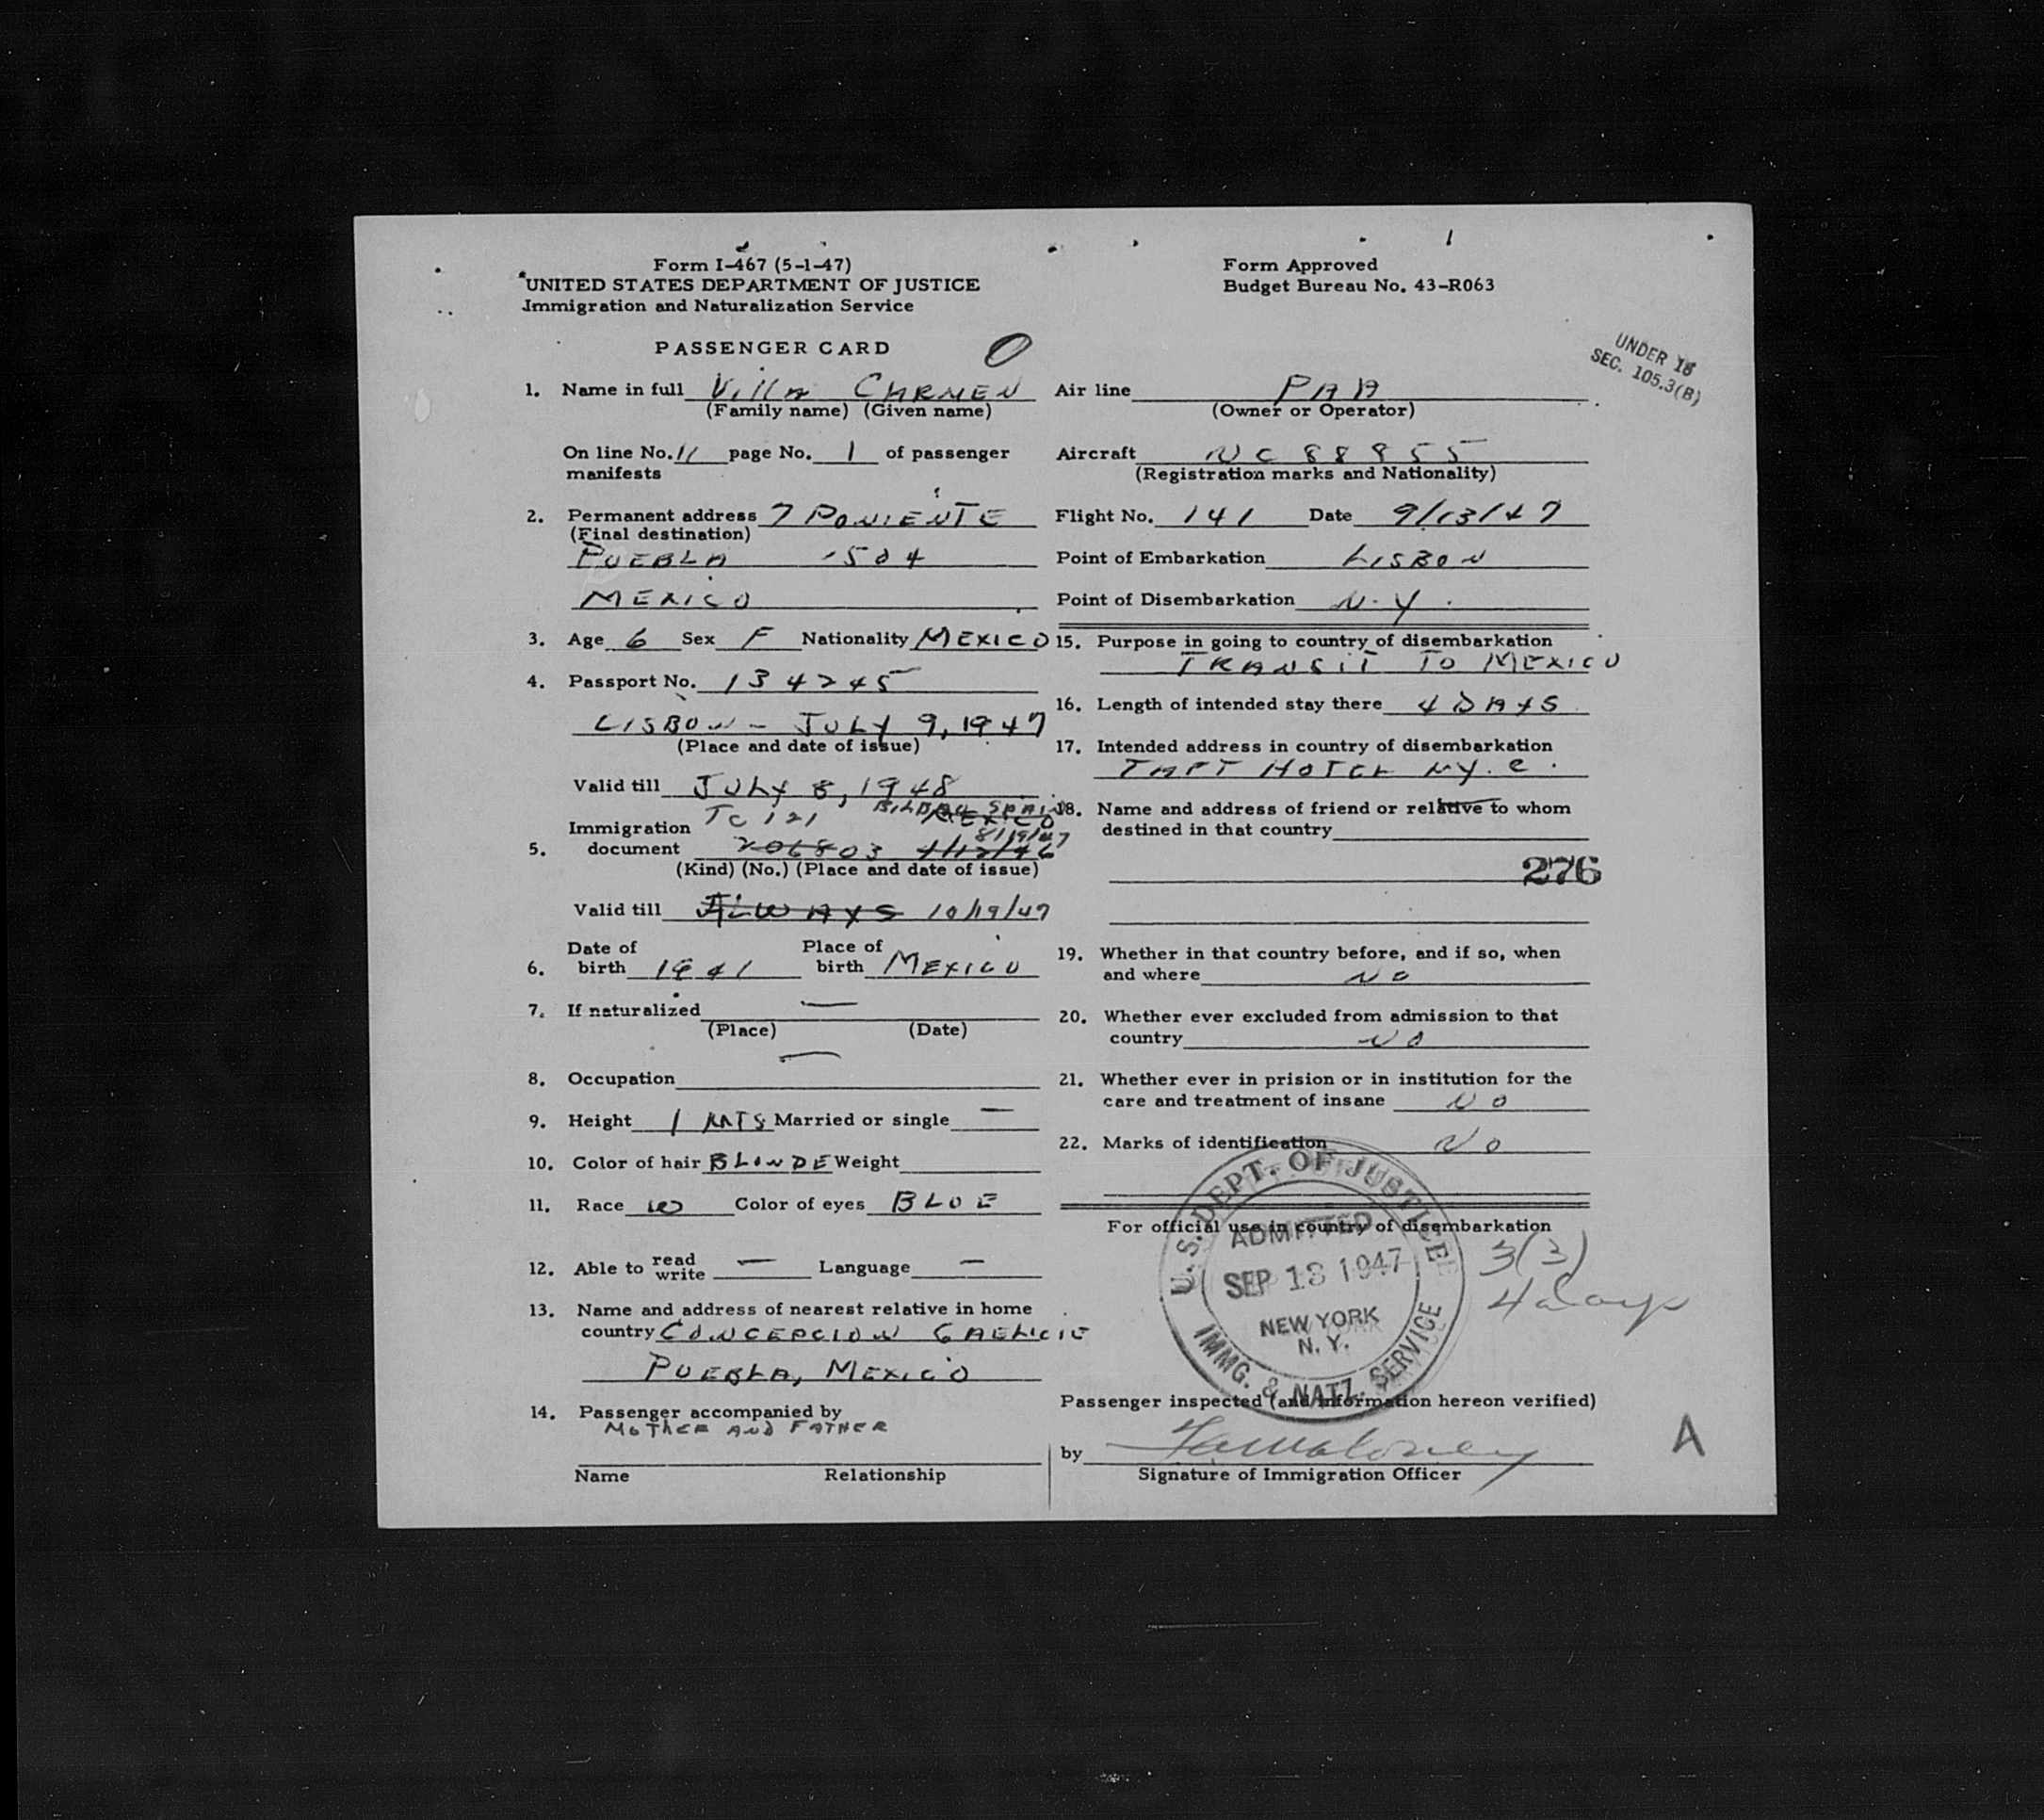 Form I-467 (5-1-47)
UNITED STATES DEPARTMENT OF JUSTICE
Immigration and Naturalization Service
PASSENGER CARD
O
1. Name in full Villa Carmen
(Family name) (Given name)
On line No. 11 page No. 1 of passenger
manifests
2. Permanent address 7 PONIENTE
(Final destination)
PUEBLA 1504
MEXICO
3. Age 6 Sex F Nationality MEXICO
4. Passport No. 134245
LISBON - JULY 9, 1947
(Place and date of issue)
Valid till JULY 8, 1948
TC 121 BILBAO SPAIN
MEXICO
Immigration 8/19/47
5. document 206803 4/12/46
(Kind) (No.) (Place and date of issue)
Valid till ALWAYS 10/19/47
Date of Place of
6. birth 1941 birth MEXICO
7. If naturalized —
(Place) (Date)
—
8. Occupation
9. Height 1 MTS Married or single —
10. Color of hair BLONDE Weight
11. Race W Color of eyes BLUE
12. Able to read write — Language —
13. Name and address of nearest relative in home
country CONCEPCION
PUEBLA, MEXICO
14. Passenger accompanied by
MOTHER AND FATHER
Name Relationship
1
Form Approved
Budget Bureau No. 43-R063
UNDER 16
SEC. 105.3(B)
Air line PAA
(Owner or Operator)
Aircraft NC 88855
(Registration marks and Nationality)
Flight No. 141 Date 9/13/47
Point of Embarkation LISBON
Point of Disembarkation N.Y.
15. Purpose in going to country of disembarkation
TRANSIT TO MEXICO
16. Length of intended stay there 4 DAYS
17. Intended address in country of disembarkation
TAFT HOTEL NY.C.
18. Name and address of friend or relative to whom
destined in that country
276
19. Whether in that country before, and if so, when
and where NO
20. Whether ever excluded from admission to that
country NO
21. Whether ever in prision or in institution for the
care and treatment of insane NO
22. Marks of identification NO
For official use in country of disembarkation
U.S. DEPT. OF JUSTICE
ADMITTED
SEP 13 1947
NEW YORK
N. Y.
IMMG. & NATZ. SERVICE
3(3)
4 days
Passenger inspected (and information hereon verified)
by
Signature of Immigration Officer
A